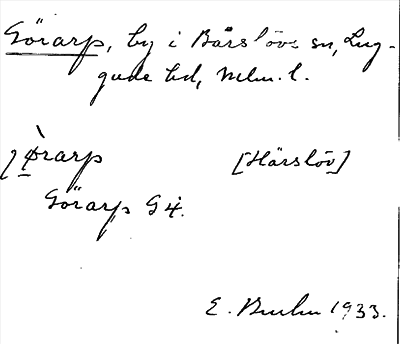 Görarp, by i Bårslövs sn, Lug-
gude hd, Mlm. l.
jö̀rarp [Härslöv]
Görarp G 4.
E. 1933.